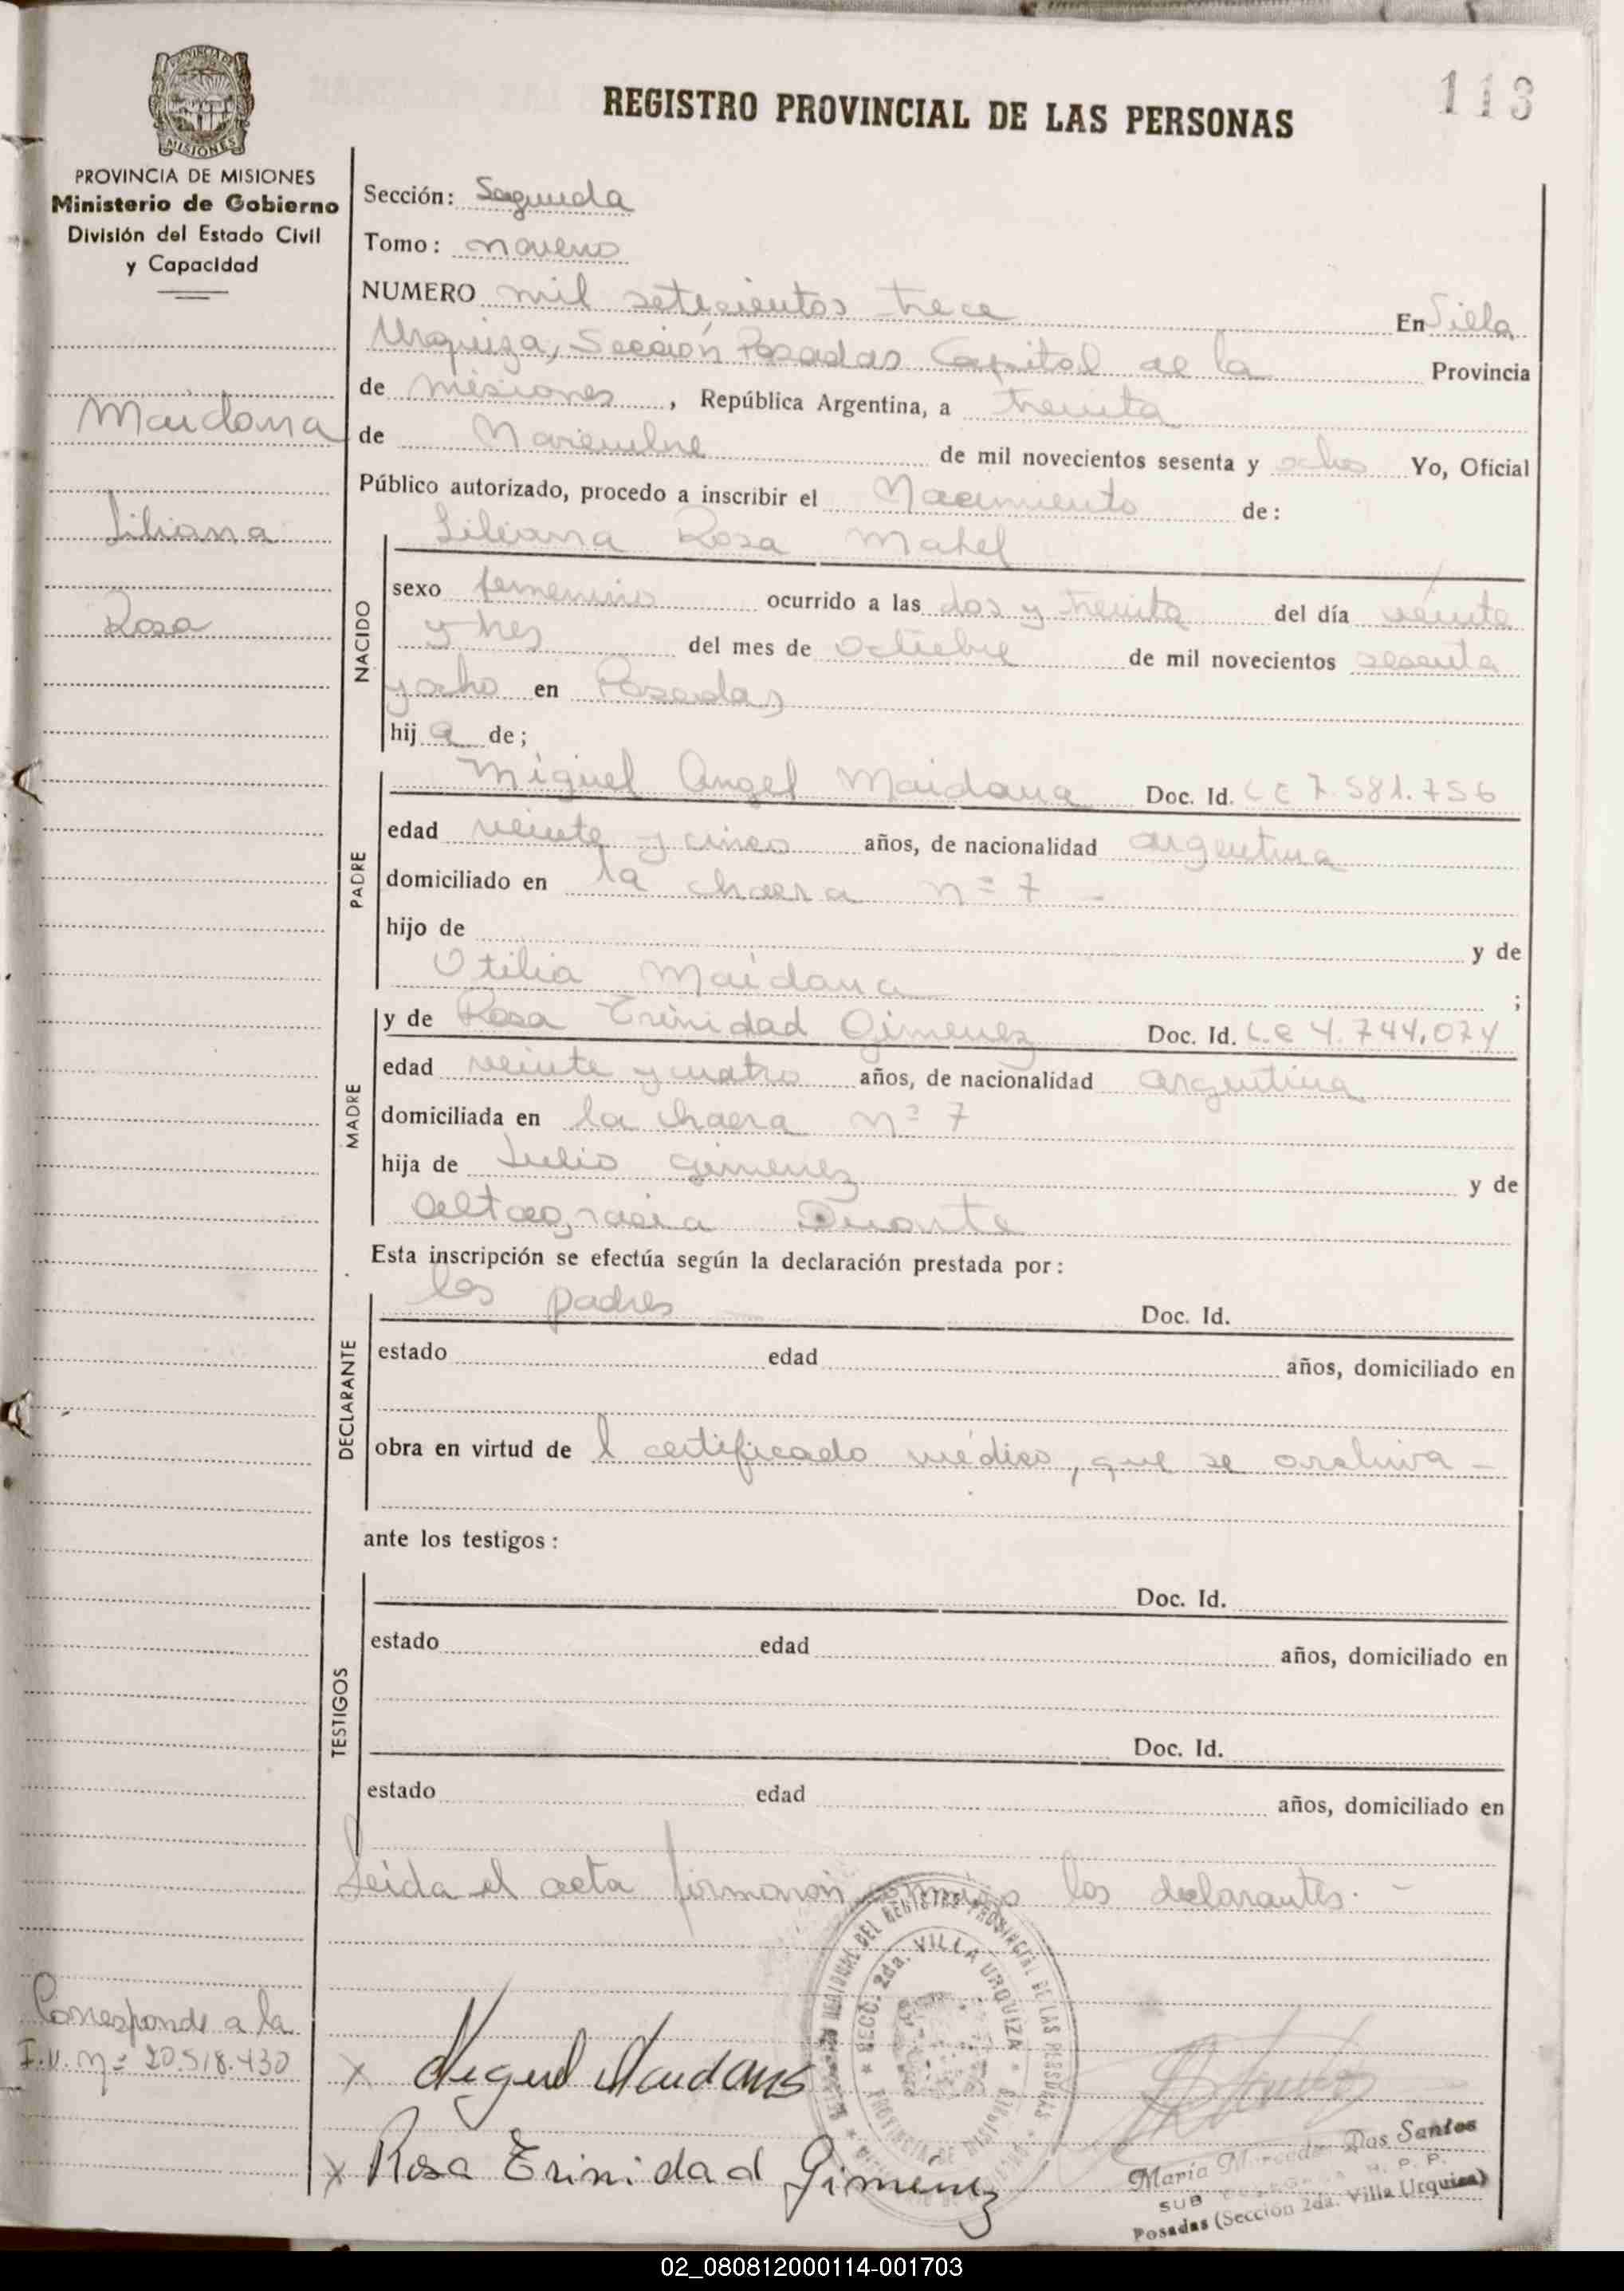 113
REGISTRO PROVINCIAL DE LAS PERSONAS
PROVINCIA DE MISIONES
MISIONES
PROVINCIA DE MISIONES
Ministerio de Gobierno
División del Estado Civil
y Capacidad
Maidana
Liliana
Rosa
Sección: Segunda
Tomo: noveno
NUMERO mil setecientos trece En Villa
Urquiza, Sección Posadas Capital de la Provincia
de misiones, República Argentina, a treinta
de Noviembre de mil novecientos sesenta y ocho Yo, Oficial
Público autorizado, procedo a inscribir el Nacimiento de:
NACIDO
Liliana Rosa Mabel
sexo femenino ocurrido a las dos y treinta del día veinte
y tres del mes de Octubre de mil novecientos sesenta
y ocho en Posadas
hij a de;
PADRE
Miguel Angel Maidana Doc. Id. LE 7.581.756
edad veinte y cinco años, de nacionalidad argentina
domiciliado en la chacra nº 7 -
hijo de y de
Otilia Maidana ;
MADRE
y de Rosa Trinidad Gimenez Doc. Id. L.C 4.744.074
edad veinte y cuatro años, de nacionalidad argentina
domiciliada en la chacra nº 7
hija de Julio Gimenez y de
Altagracia Duarte
Esta inscripción se efectúa según la declaración prestada por:
DECLARANTE
los padres Doc. Id.
estado edad años, domiciliado en
obra en virtud de l certificado médico, que se archiva -
ante los testigos:
TESTIGOS
Doc. Id.
estado edad años, domiciliado en
Doc. Id.
estado edad años, domiciliado en
Leida el acta firmaron conmigo los declarantes. -
Corresponde a la
I.N. nº 20.518.430
x Miguel Maidana
x Rosa Trinidad Giménez
DEL REGISTRO PROVINCIAL DE LAS PERSONAS
SECC. 2da. VILLA URQUIZA
PROVINCIA DE MISIONES
María Mercedes Dos Santos
SUB R. P. P.
Posadas (Sección 2da. Villa Urquiza)
02_080812000114-001703